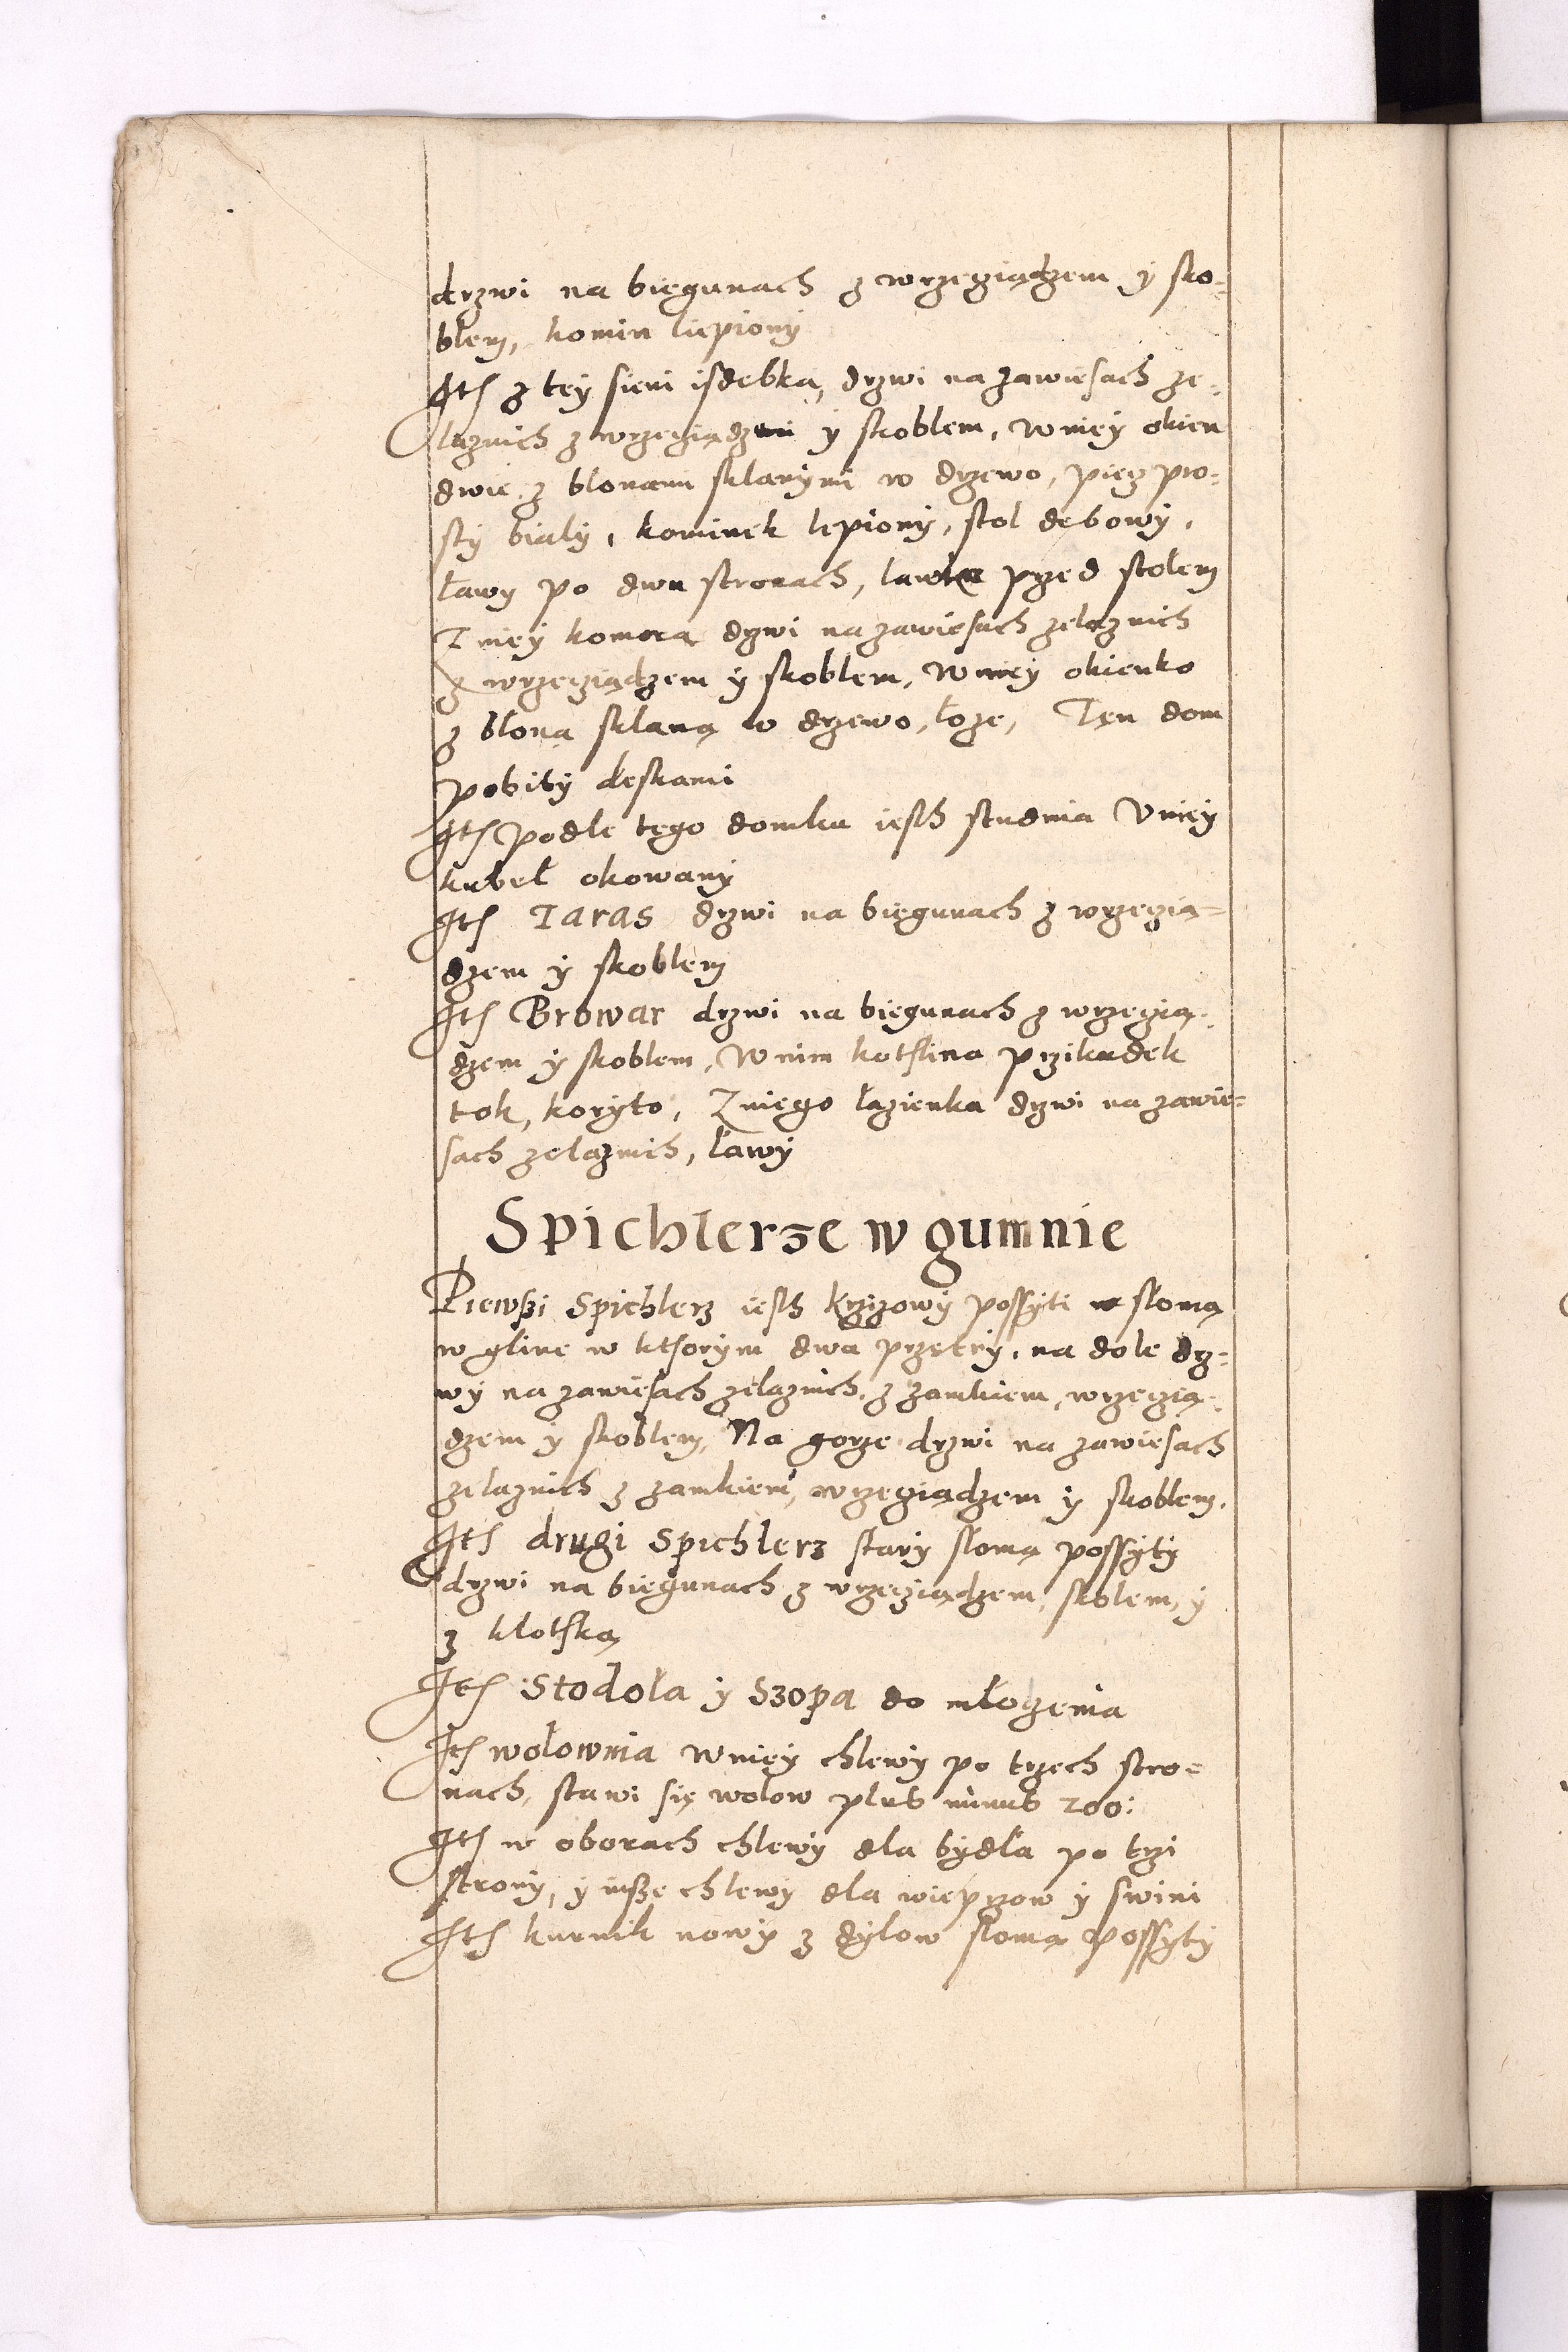 drzwi na biegunach z wrzeciądzem y sko-
blem, komin liepiony
Jtem z tey sieni isdebka, drzwi na zawiesach ze-
laznich z wrzeciądzem y skoblem, w niey okien
dwie z blonami sklanymi w drzewo, piec pro-
sty bialy, kominek lepiony, stol dębowy,
ławy po dwu stronach, lawka przed stolem
Z niey komora drzwi na zawiesach zelaznich
z wrzeciądzem y skoblem, w niey okienko
z błoną sklaną w drzewo, łoze, Ten dom
pobity deskami
Jtem podle tego domku iesth studnia v niey
kubeł okowany
Jtem Taras drzwi na biegunach z wrzecią-
dzem y skoblem
Jtem Browar drzwi na biegunach z wrzecią-
dzem y skoblem, W nim kothlina przikadek
tok, koryto, Z niego łazienka drzwi na zawie-
sach zelaznich, ławy
Spichlerze w gumnie
Pierwszi Spichlerz iesth krzizowy possyti słomą
w gline w kthorym dwa przetry, na dole drz-
wy na zawiesach zelaznich, z zamkiem, wrzecią-
dzem y skoblem, Na gorze drzwi na zawiesach
zelaznich z zamkiem, wrzeciądzem y skoblem,
Jtem drugi Spichlerz stary słomą possyty
drzwi na biegunach z wrzeciądzem, skoblem, y
z klothką
Jtem Stodoła y Szopa do młocenia
Jtem wołownia w niey chlewy po trzech stro-
nach, stawi się wolow plus minus 200:
Jtem w oborach chlewy dla bydła po trzi
strony, y insze chlewy dla wieprzow y swini
Jtem kurnik nowy z dylow słomą possyty